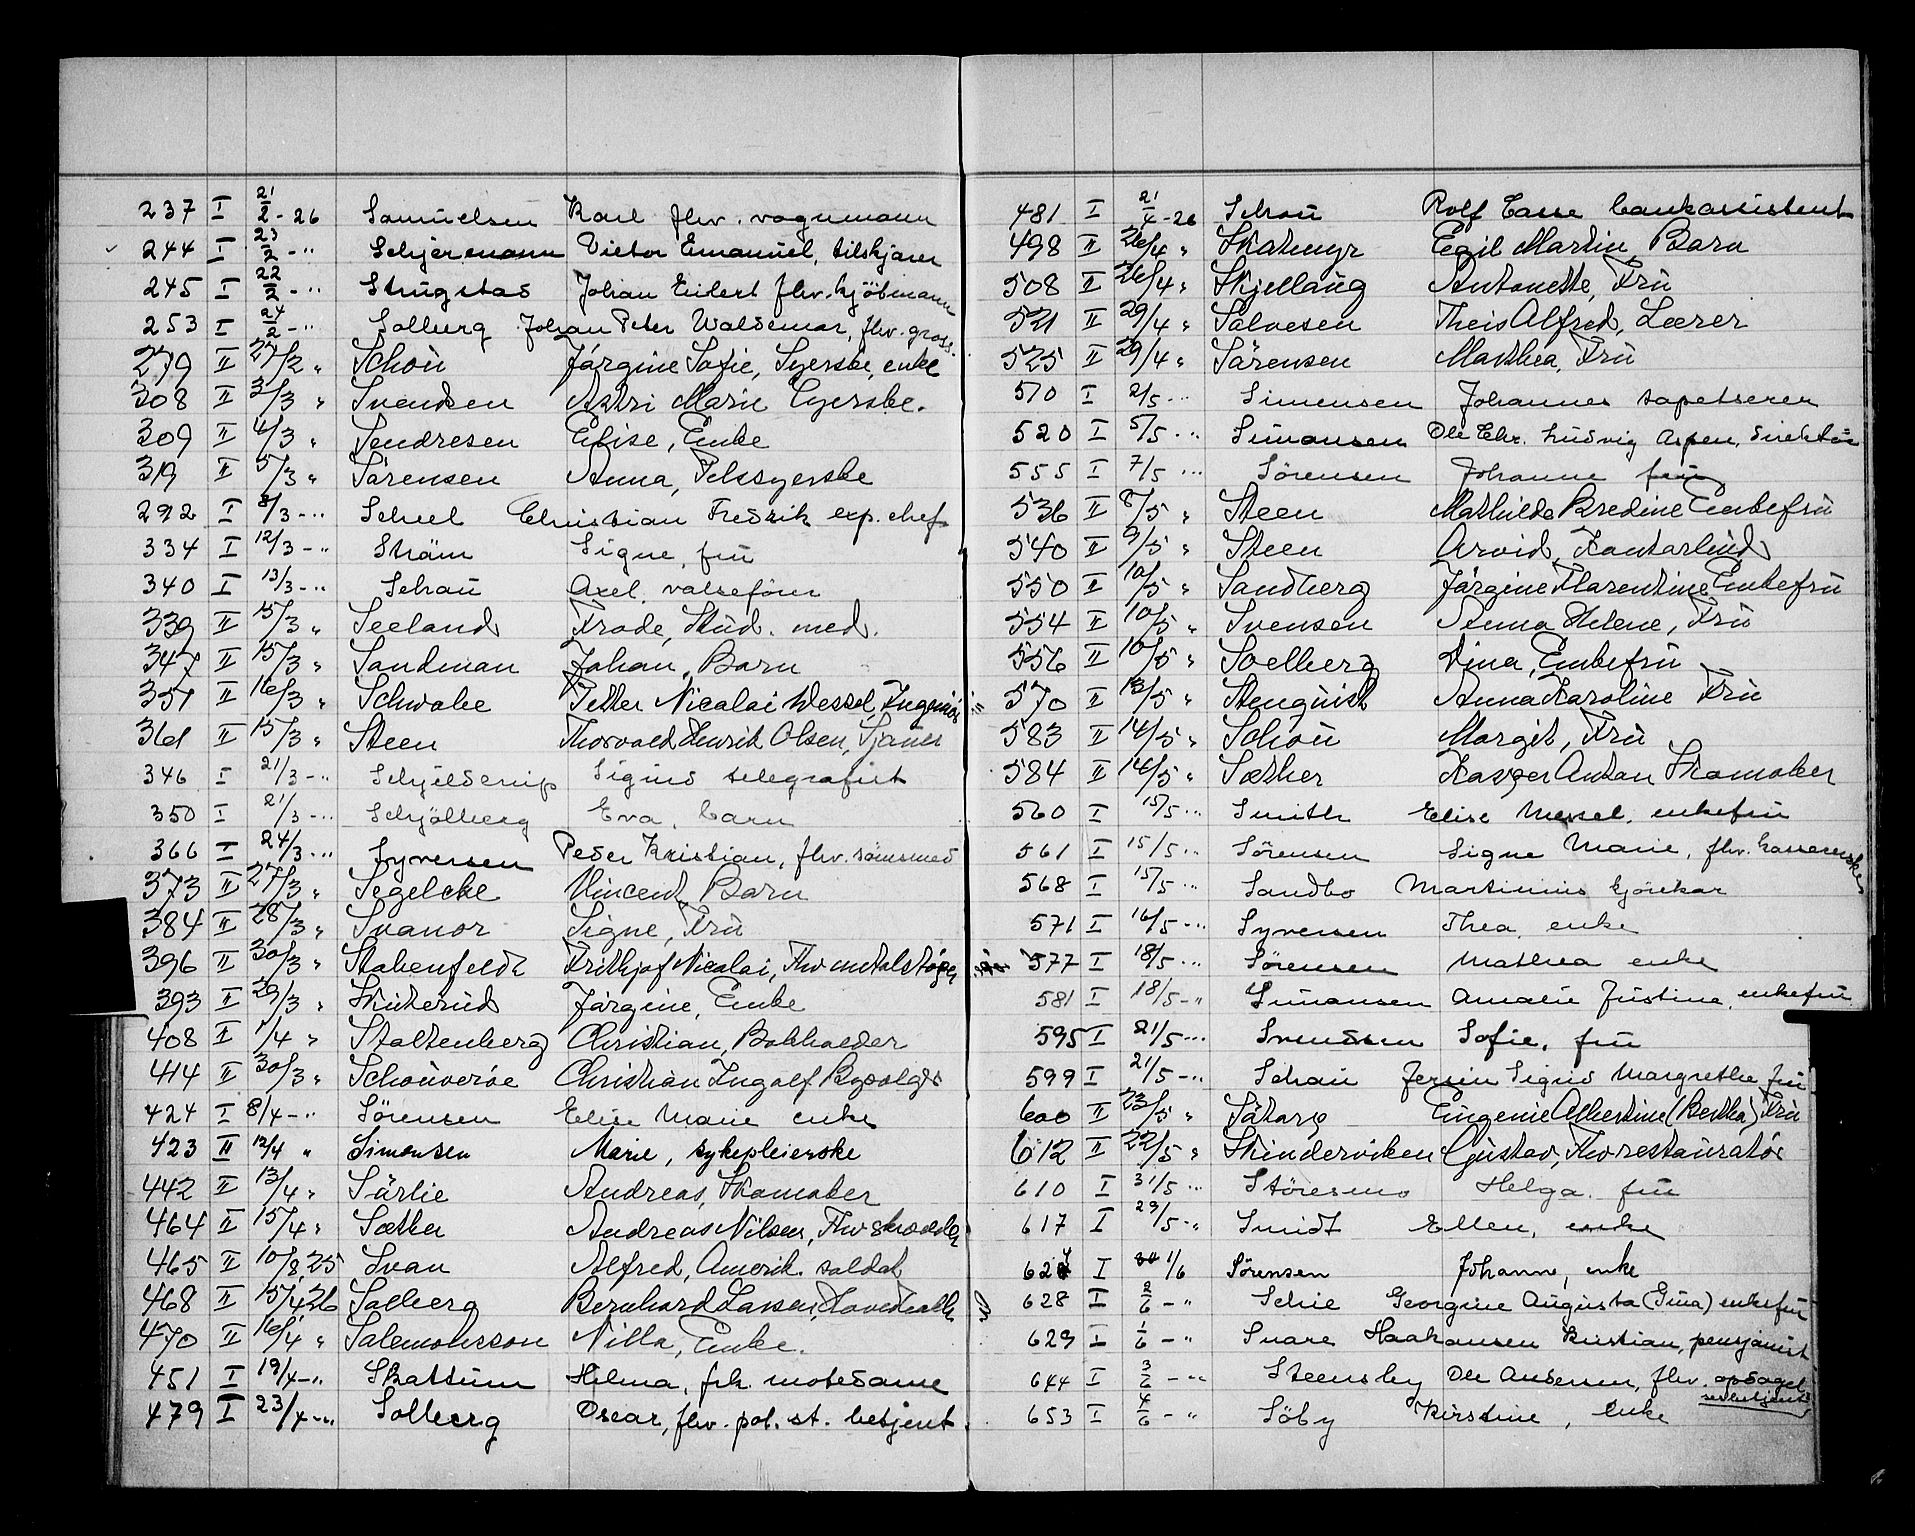 237 I 21/2 - 26 Samuelsen Karl fhv. vognmann
244 I 23/2 - " Schjermann Victor Emanuel, tilskjærer
245 I 22/2 - " Strugstad Johan Eilert fhv. kjöbmann
253 I 24/2 - " Solberg Johan Peter Waldemar, fhv. gross.
279 II 27/2 " Schou Jørgine Sofie, Syerske, enke
308 II 3/3 " Svendsen Astri Marie Syerske.
309 II 4/3 " Sendresen Elise, Enke
319 II 5/3 " Sørensen Anna, Pelssyerske
292 I 8/3 - " Scheel Christian Fredrik exp. chef
334 I 12/3 - " Strøm Signe, fru
340 I 13/3 - " Schau Axel, valsefører
339 II 15/3 " Seeland Frode, Stud. med.
347 II 15/3 " Sandman Johan, Barn
351 II 16/3 " Schwabe Petter Nicolai Wessel, Ingeniør
361 II 15/3 " Steen Thorvald Henrik Olsen,
346 I 21/3 - " Schjelderup Sigurd telegrafist
350 I 21/3 - " Schjölberg Eva, barn
366 I 24/3 - " Syversen Peder Kristian, fhv. sømsmed
373 II 27/3 " Segelcke Vincent, Barn
384 II 28/3 " Svanor Signe, Fru
396 II 30/3 " Stabenfeldt Frithjof Nicolai, Fhv metalstøper
393 II 29/3 " Skuterud Jørgine, Enke
408 II 1/4 " Stoltenberg Christian, Bokholder
414 II 30/3 " Schouverøe Christian Ingolf Bysolgr
424 I 8/4 - " Sørensen Elise Marie enke
423 II 12/4 " Simonsen Marie, sykepleierske
442 II 13/4 " Sürlie Andreas, Skomaker
464 II 15/4 " Sæther Andreas Nilsen, Fhv skrædder
465 II 10/8 25 Svan Alfred, Amerik. soldat
468 II 15/4 26 Solberg Bernhard Larsen,
470 II 16/4 " Salomonsson Nilla, Enke.
451 I 19/4 - " Skattum Hilma, frk. motedame
479 I 23/4 - " Solberg Oscar, fhv. pol. st. betjent.
481 I 21/4 - 26 Schou Rolf Tasse bankassistent
498 II 26/4 " Skatmyr Egil Martin Barn
508 II 26/4 " Skjellaug Antonette, Fru
521 II 29/4 " Salvesen Theis Alfred, Lærer
525 II 29/4 " Sørensen Marthea, Fru
510 I 2/5 - " Simensen Johannes tapetserer
520 I 5/5 - " Simonsen Ole Chr. Ludvig Aspen, direktör
555 I 7/5 - " Sørensen Johanne fru
536 II 8/5 " Steen Mathilde Bredine Enkefru
540 II 9/5 " Steen Arvid, Kontorbud
550 II 10/5 " Sandberg Jørgine Florentine Enkefru
554 II 10/5 " Svensen Anna Helene, Fru
556 II 10/5 " Soelberg Dina, Enkefru
570 II 13/5 " Stenquist Anna Karoline Fru
583 II 14/5 " Schou Margit, Fru
584 II 14/5 " Sæther Kasper Anton Skomaker
560 I 15/5 - " Smith Elise Wessel, enkefru
561 I 15/5 - " Sørensen Signe Marie, fhv. kassererske
568 I 15/5 - " Sandbo Martinius kjörekar
571 I 16/5 - " Syversen Thea, enke
577 I 18/5 - " Sørensen Mathea enke
581 I 18/5 - " Simonsen Amalie Justine, enkefru
595 I 21/5 - " Svendsen Sofie, fru
599 I 21/5 - " Schau Sigrid Margrethe fru
600 II 23/5 " Eugenie Albertine (Bertha) Fru
612 II 22/5 " Skinderviken Gustav, Fhv restauratør
610 I 31/5 - " Helga, fru
617 I 29/5 - " Smidt Ellen, enke
624 I 1/6 Sørensen Johanne, enke
628 I 2/6 - " Schie Georgine Augusta (Gina) enkefru
629 I 1/6 - " Svare Haakonsen Kristian, pensjonist
644 I 3/6 - " Steensby Ole Andersen, fhv. opdaget
653 I 4/6 - " Söby Kirstine, enke